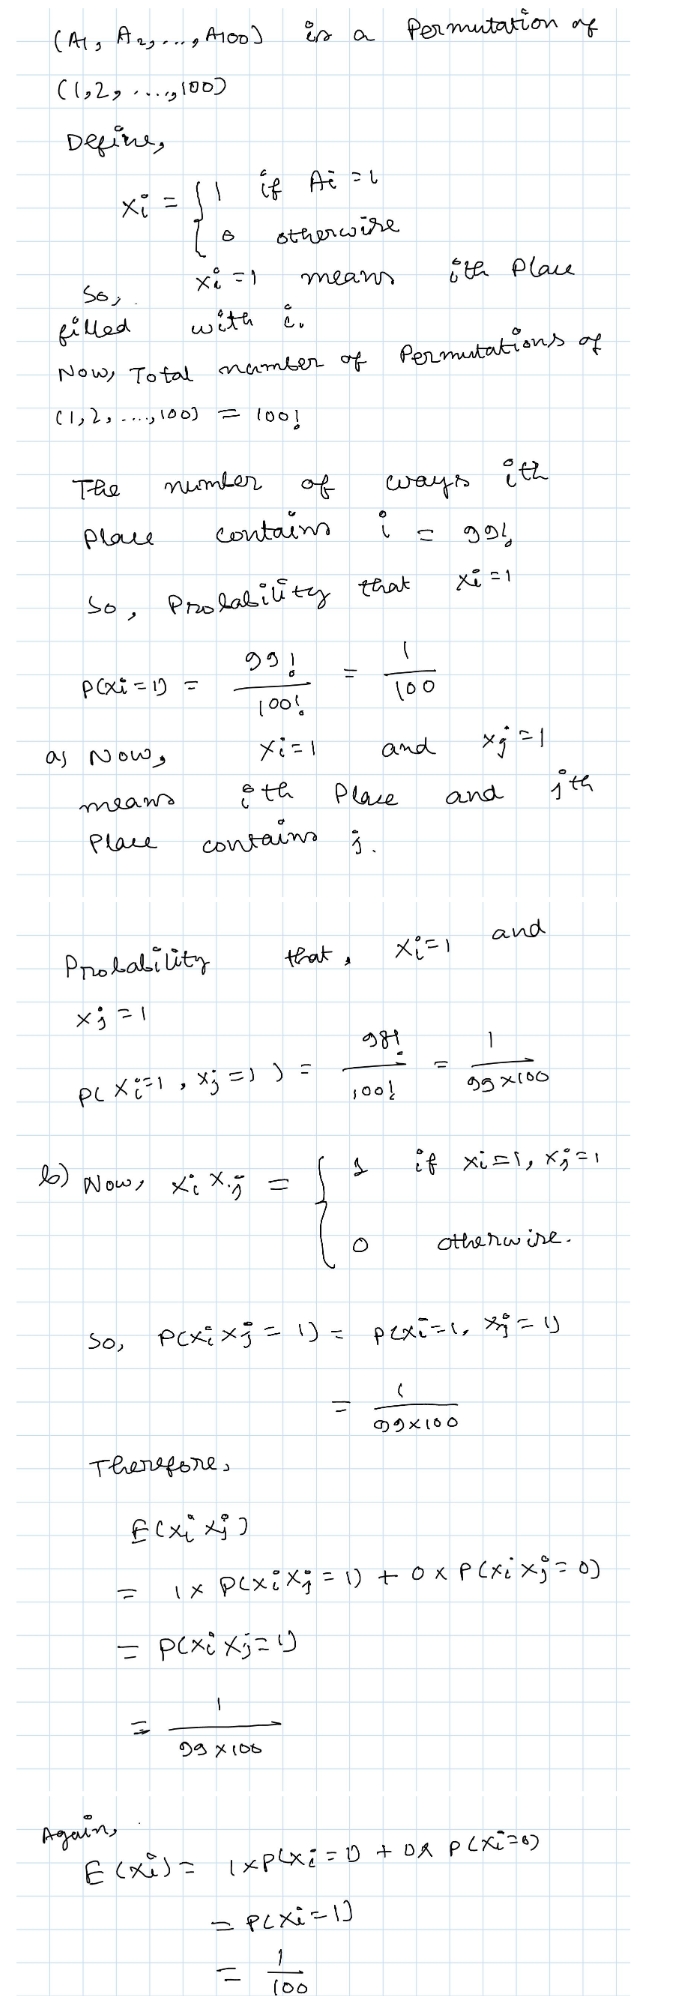 (A1, A2, ..., A100) is a Permutation of
(1,2, ...., 100)
Define,
Xi = { 1 if Ai = i
0 otherwise
So, Xi = 1 means ith Place
filled with i.
Now, Total number of Permutations of
(1,2, ...., 100) = 100!
The number of ways ith
Place contains i = 99!
So, Probability that Xi = 1
P(Xi = 1) = 99! / 100! = 1 / 100
a) Now, Xi = 1 and Xj = 1
means ith Place and jth
Place contains j.
Probability that, Xi = 1 and
Xj = 1
P( Xi = 1 , Xj = 1 ) = 98! / 100! = 1 / 99 × 100
b) Now, Xi Xj = { 1 if Xi = 1, Xj = 1
0 otherwise.
So, P(Xi Xj = 1) = P(Xi = 1, Xj = 1)
= 1 / 99 × 100
Therefore,
E(Xi Xj)
= 1 × P(Xi Xj = 1) + 0 × P(Xi Xj = 0)
= P(Xi Xj = 1)
= 1 / 99 × 100
Again,
E(Xi) = 1 × P(Xi = 1) + 0 × P(Xi = 0)
= P(Xi = 1)
= 1 / 100